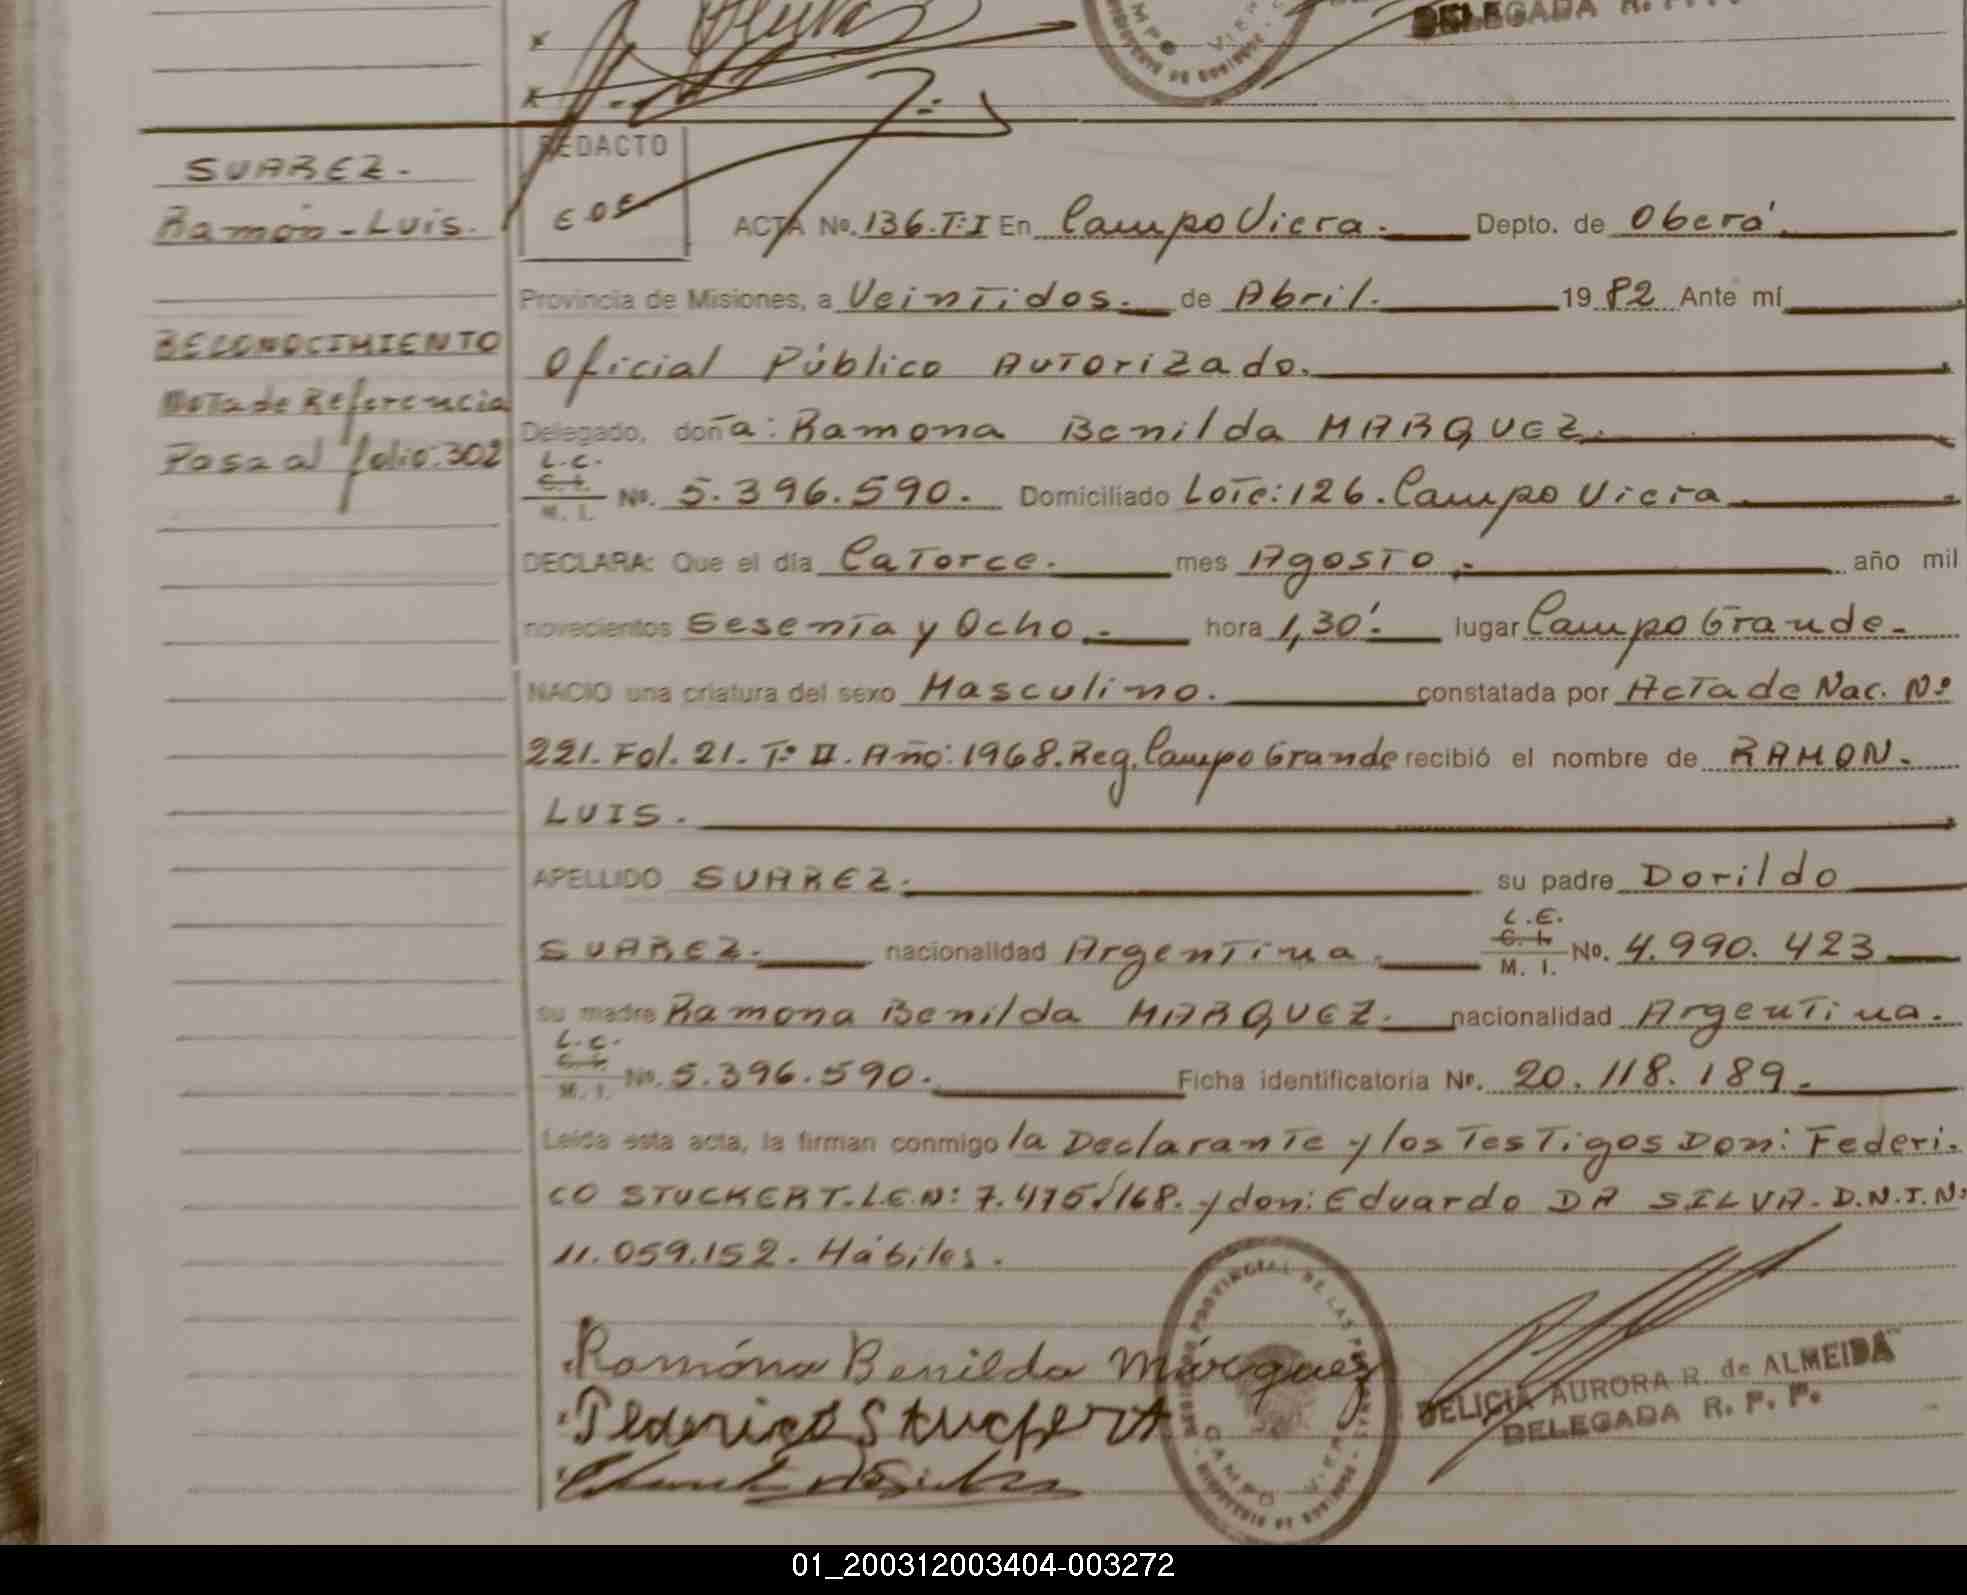 DELEGADA R. P. P.
SUAREZ.
Ramón-Luis.
RECONOCIMIENTO
Nota de Referencia
Pasa al folio:302
REDACTO
ACTA No. 136.T:I En Campo Viera. Depto. de Oberá
Provincia de Misiones, a Veintidos. de Abril. 1982 Ante mí
Oficial Público Autorizado.
Delegado, doña: Ramona Benilda MARQUEZ.
L.C.
C.I.
M. I.
No. 5.396.590. Domiciliado Lote:126. Campo Viera
DECLARA: Que el día Catorce. mes Agosto. año mil
novecientos Sesenta y Ocho. hora 1,30'. lugar Campo Grande.
NACIO una criatura del sexo Masculino. constatada por Acta de Nac. Nº
221. Fol. 21. Tº II. Año: 1968. Reg. Campo Grande recibió el nombre de RAMON.
LUIS.
APELLIDO SUAREZ. su padre Dorildo
L.E.
C. I.
M. I.
SUAREZ. nacionalidad Argentina. No. 4.990.423
su madre Ramona Benilda MARQUEZ. nacionalidad Argentina.
L.C.
C. I.
M. I.
No. 5.396.590. Ficha identificatoria Nr. 20.118.189.
Leída esta acta, la firman conmigo la Declarante y los Testigos Don: Federi-
co STUCKERT. L.E.N: 7.475.168. y don: Eduardo DA SILVA. D.N.I.Nº
11.059.152. Hábiles.
Ramóna Benilda Márquez
Federico Stuckert
REGISTRO PROVINCIAL DE LAS PERSONAS
CAMPO VIERA
PROVINCIA DE MISIONES
DELICIA AURORA R. de ALMEIDA
DELEGADA R. P. P.
01_200312003404-003272